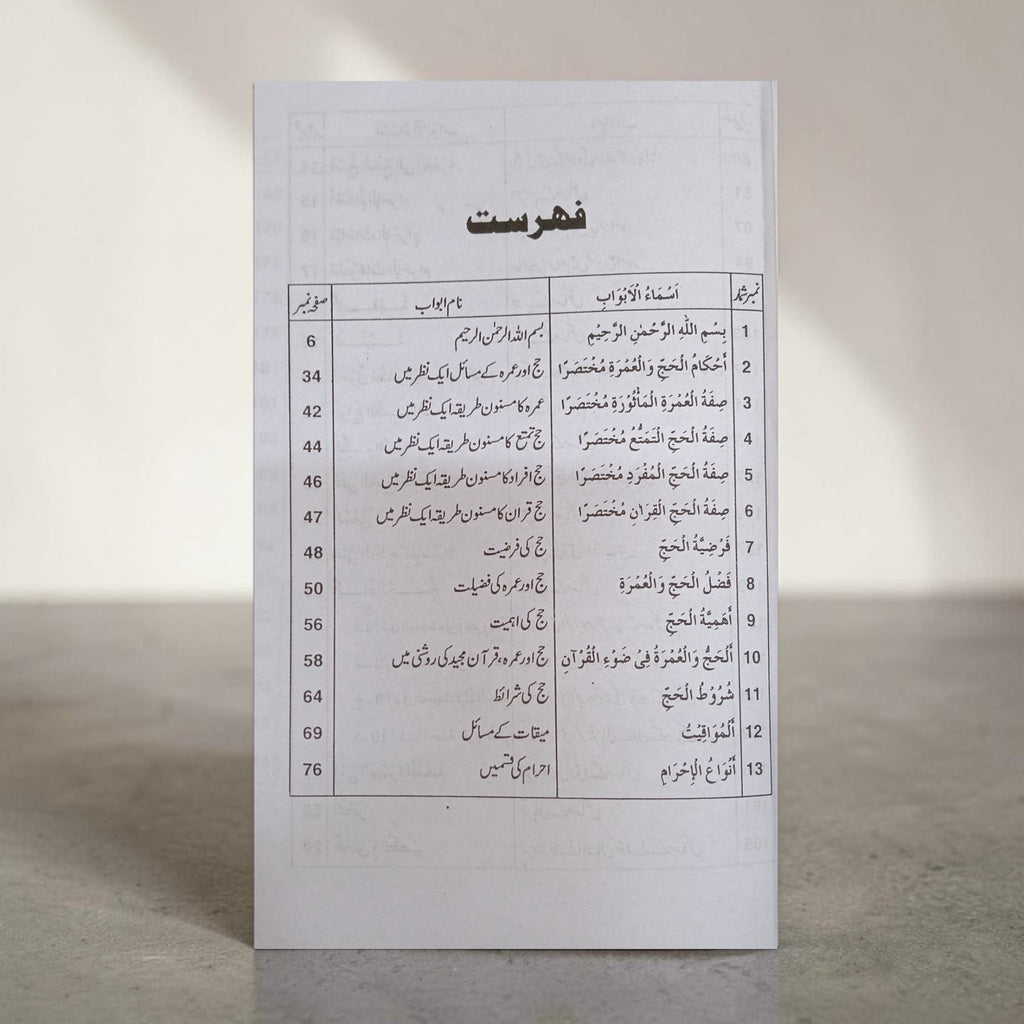 فهرست
نمبر شمار اَسْمَاءُ الْاَبْوَابِ نام ابواب صفحہ نمبر
1 بِسْمِ اللّٰهِ الرَّحْمٰنِ الرَّحِيْمِ بسم اللہ الرحمٰن الرحیم 6
2 أَحْكَامُ الْحَجِّ وَالْعُمْرَةِ مُخْتَصَرًا حج اور عمرہ کے مسائل ایک نظر میں 34
3 صِفَةُ الْعُمْرَةِ الْمَأْثُوْرَةِ مُخْتَصَرًا عمرہ کا مسنون طریقہ ایک نظر میں 42
4 صِفَةُ الْحَجِّ الْتَمَتُّعِ مُخْتَصَرًا حج تمتع کا مسنون طریقہ ایک نظر میں 44
5 صِفَةُ الْحَجِّ الْمُفْرَدِ مُخْتَصَرًا حج افراد کا مسنون طریقہ ایک نظر میں 46
6 صِفَةُ الْحَجِّ الْقِرَانِ مُخْتَصَرًا حج قران کا مسنون طریقہ ایک نظر میں 47
7 فَرْضِيَّةُ الْحَجِّ حج کی فرضیت 48
8 فَضْلُ الْحَجِّ وَالْعُمْرَةِ حج اور عمرہ کی فضیلت 50
9 أَهَمِيَّةُ الْحَجِّ حج کی اہمیت 56
10 اَلْحَجُّ وَالْعُمْرَةُ فِىْ ضَوْءِ الْقُرْآنِ حج اور عمرہ، قرآن مجید کی روشنی میں 58
11 شُرُوْطُ الْحَجِّ حج کی شرائط 64
12 اَلْمَوَاقِيْتُ میقات کے مسائل 69
13 أَنْوَاعُ الْإِحْرَامِ احرام کی قسمیں 76